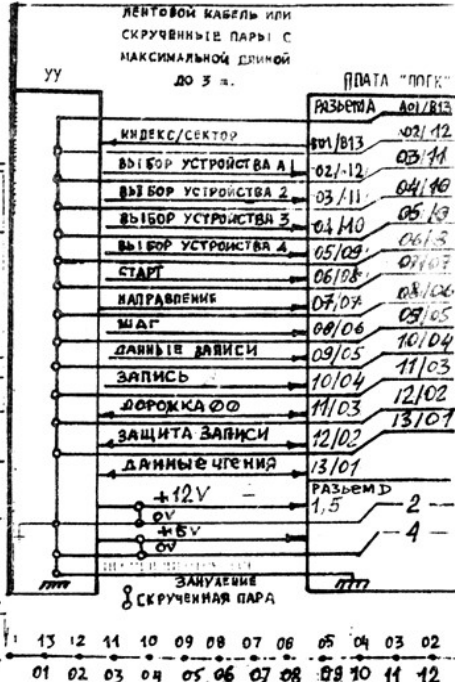 ЛЕНТОВОЙ КАБЕЛЬ ИЛИ
СКРУЧЕННЫЕ ПАРЫ С
МАКСИМАЛЬНОЙ ДЛИНОЙ
ДО 3 м.
УУ
ПЛАТА "ПОГК"
РАЗЪЕМ А А01/В13
ИНДЕКС/СЕКТОР В01/В13 02/12
ВЫБОР УСТРОЙСТВА 1 02/12 03/11
ВЫБОР УСТРОЙСТВА 2 03/11 04/10
ВЫБОР УСТРОЙСТВА 3 04/10 05/9
ВЫБОР УСТРОЙСТВА 4 05/09 06/8
СТАРТ 06/08 07/07
НАПРАВЛЕНИЕ 07/07 08/06
ШАГ 08/06 09/05
ДАННЫЕ ЗАПИСИ 09/05 10/04
ЗАПИСЬ 10/04 11/03
ДОРОЖКА 00 11/03 12/02
ЗАЩИТА ЗАПИСИ 12/02 13/01
ДАННЫЕ ЧТЕНИЯ 13/01
РАЗЪЕМ D
+12V 1,5 2
0V
+5V 4
0V
ЗАНУЛЕНИЕ
СКРУЧЕННАЯ ПАРА
13 12 11 10 09 08 07 06 05 04 03 02
01 02 03 04 05 06 07 08 09 10 11 12